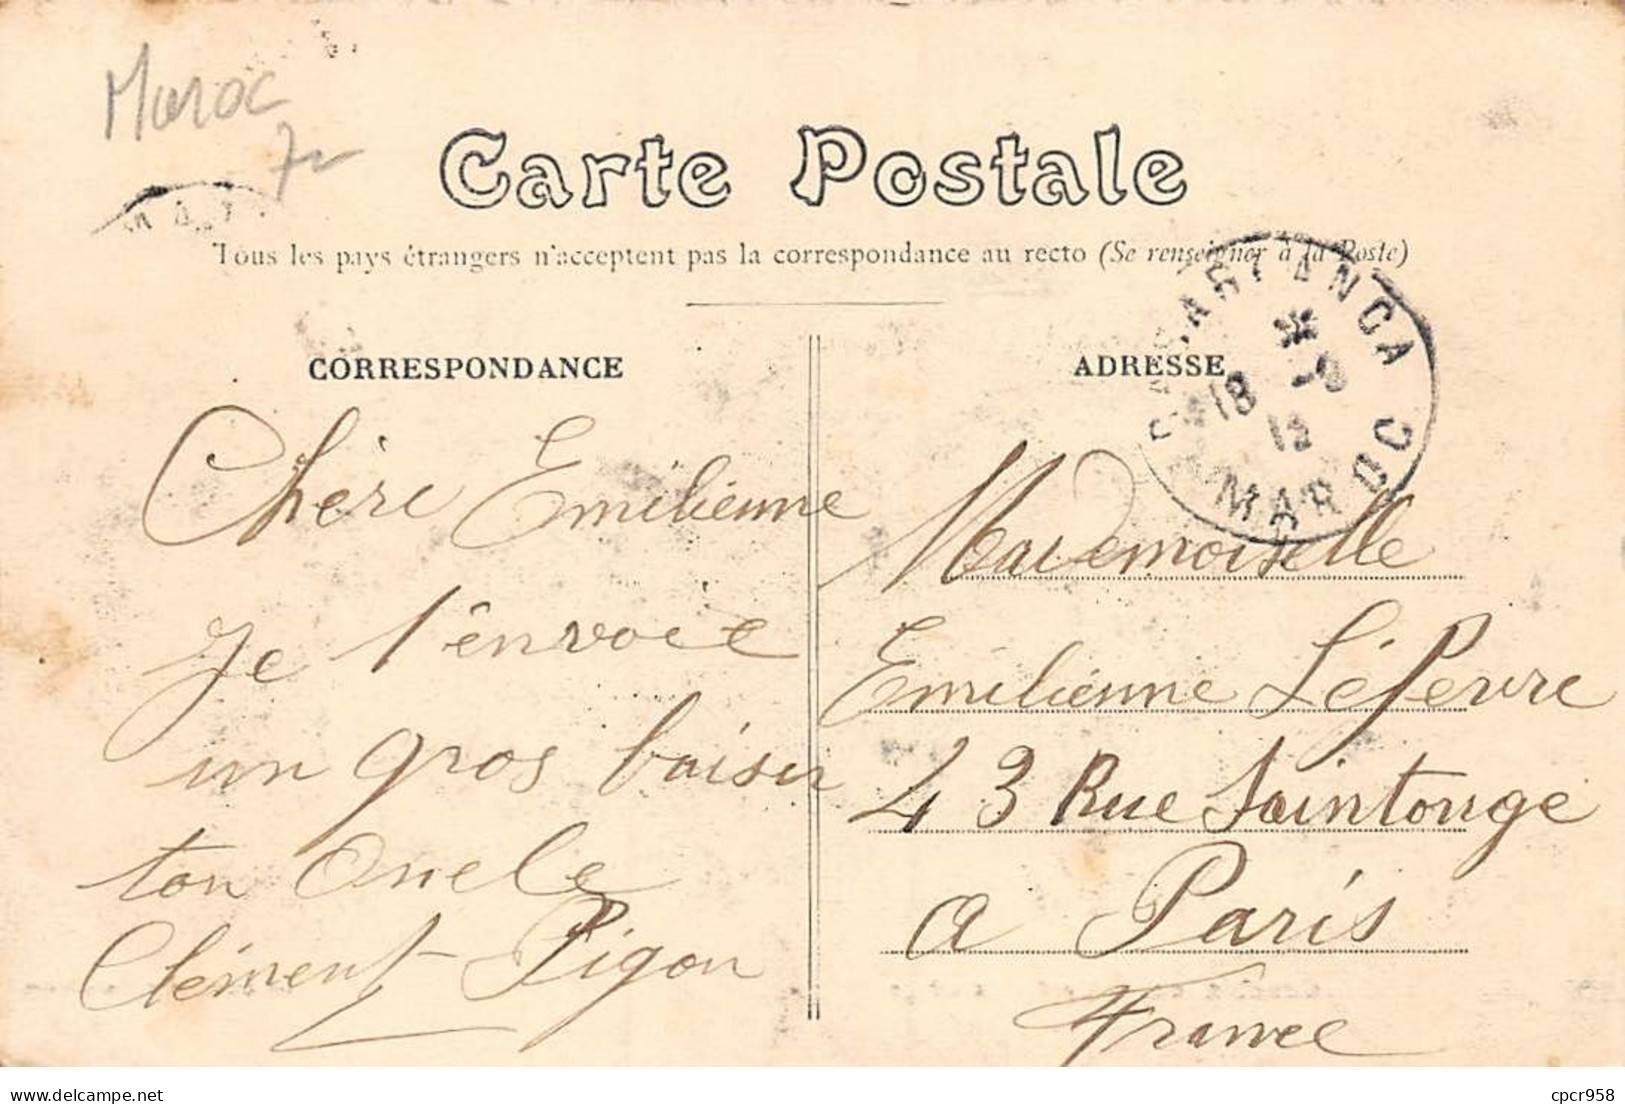 Maroc
Carte Postale
Tous les pays étrangers n'acceptent pas la correspondance au recto (Se renseigner à la Poste)
CORRESPONDANCE
Chère Emilienne
Je t'envoie
un gros baiser
ton Oncle
Clément Pigon
ADRESSE
CASABLANCA
18 -9
12
MAROC
Mademoiselle
Emilienne Léfervre
43 Rue Saintonge
a Paris
France
cpcr958